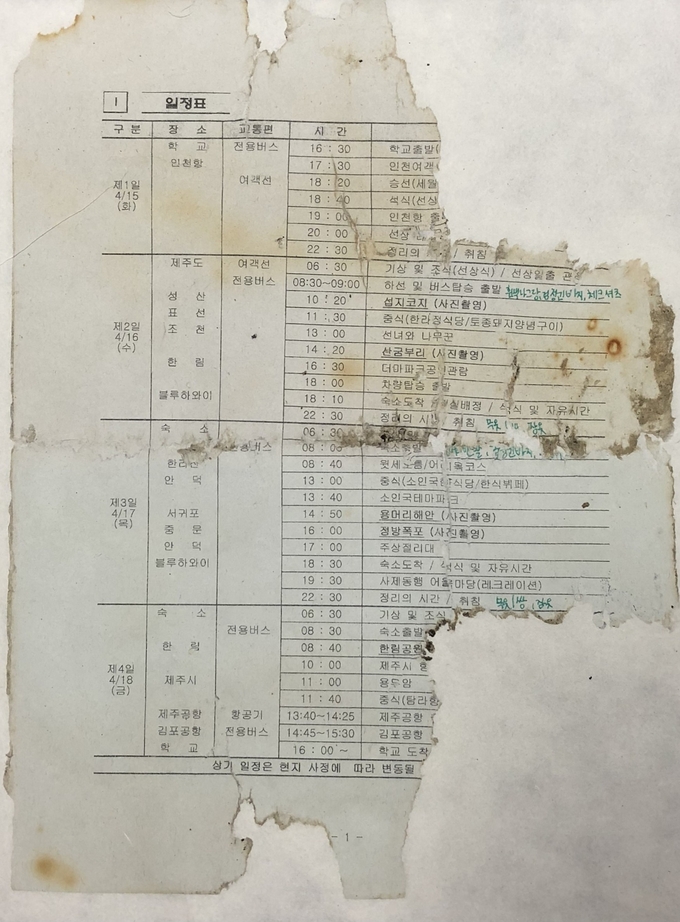 1 일정표
구 분 장 소 교통편 시 간
제1일 4/15 (화)
학 교 전용버스 16 : 30 학교출발(
인천항 17 : 30 인천여객
여객선 18 : 20 승선(세월
18 : 40 석식(선상
19 : 00 인천항 출
20 : 00 선상
22 : 30 정리의 / 취침
제2일 4/16 (수)
제주도 여객선 06 : 30 기상 및 조식(선상식) / 선상일출 관
전용버스 08:30~09:00 하선 및 버스탑승 출발
성 산 10 : 20 섭지코지 (사진촬영)
표 선 11 : 30 중식(한라정식당/토종돼지양념구이)
조 천 13 : 00 선녀와 나무꾼
14 : 20 산굼부리 (사진촬영)
한 림 16 : 30 더마파크공 관람
18 : 00 차량탑승 출발
블루하와이 18 : 10 숙소도착 실배정 / 석식 및 자유시간
22 : 30 정리의 시 / 취침
제3일 4/17 (목)
숙 소 06 : 30
08 : 00 숙소출발
한라산 08 : 40 윗세오름/어 목코스
안 덕 13 : 00 중식(소인국 식당/한식뷔페)
13 : 40 소인국테마파크
서귀포 14 : 50 용머리해안 (사진촬영)
중 문 16 : 00 정방폭포 (사진촬영)
안 덕 17 : 00 주상절리대
블루하와이 18 : 30 숙소도착 / 석식 및 자유시간
19 : 30 사제동행 어울마당(레크레이션)
22 : 30 정리의 시간 / 취침
제4일 4/18 (금)
숙 소 06 : 30 기상 및 조식
전용버스 08 : 30 숙소출발
한 림 08 : 40 한림공원
10 : 00 제주시
제주시 11 : 00 용두암
11 : 40 중식(탐라
제주공항 항공기 13:40~14:25 제주공항
김포공항 전용버스 14:45~15:30 김포공항
학 교 16 : 00 ~ 학교 도착
상기 일정은 현지 사정에 따라 변동될
- 1 -